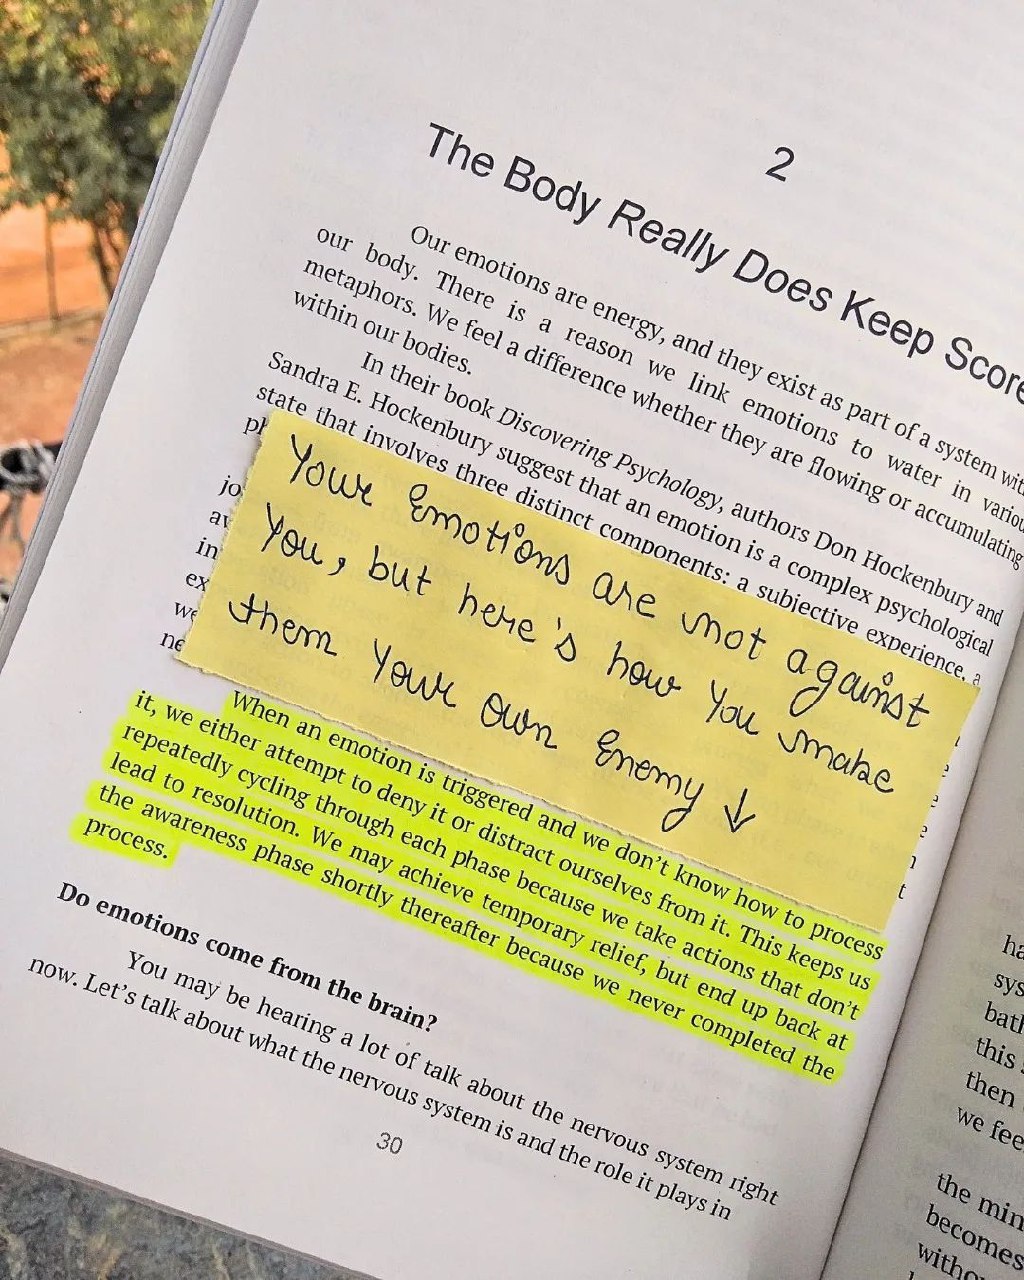 2
The Body Really Does Keep Score
Our emotions are energy, and they exist as part of a system
our body. There is a reason we link emotions to water in
metaphors. We feel a difference whether they are flowing or accumulating
within our bodies.
In their book Discovering Psychology, authors Don Hockenbury and
Sandra E. Hockenbury suggest that an emotion is a complex psychological
state that involves three distinct components: a subjective experience, a
Your Emotions are not against
You, but here's how You make
them Your Own Enemy ↓
When an emotion is triggered and we don't know how to process
it, we either attempt to deny it or distract ourselves from it. This keeps us
repeatedly cycling through each phase because we take actions that don't
lead to resolution. We may achieve temporary relief, but end up back at
the awareness phase shortly thereafter because we never completed the
process.
Do emotions come from the brain?
You may be hearing a lot of talk about the nervous system right
now. Let's talk about what the nervous system is and the role it plays in
30
this
then
we
the
becomes